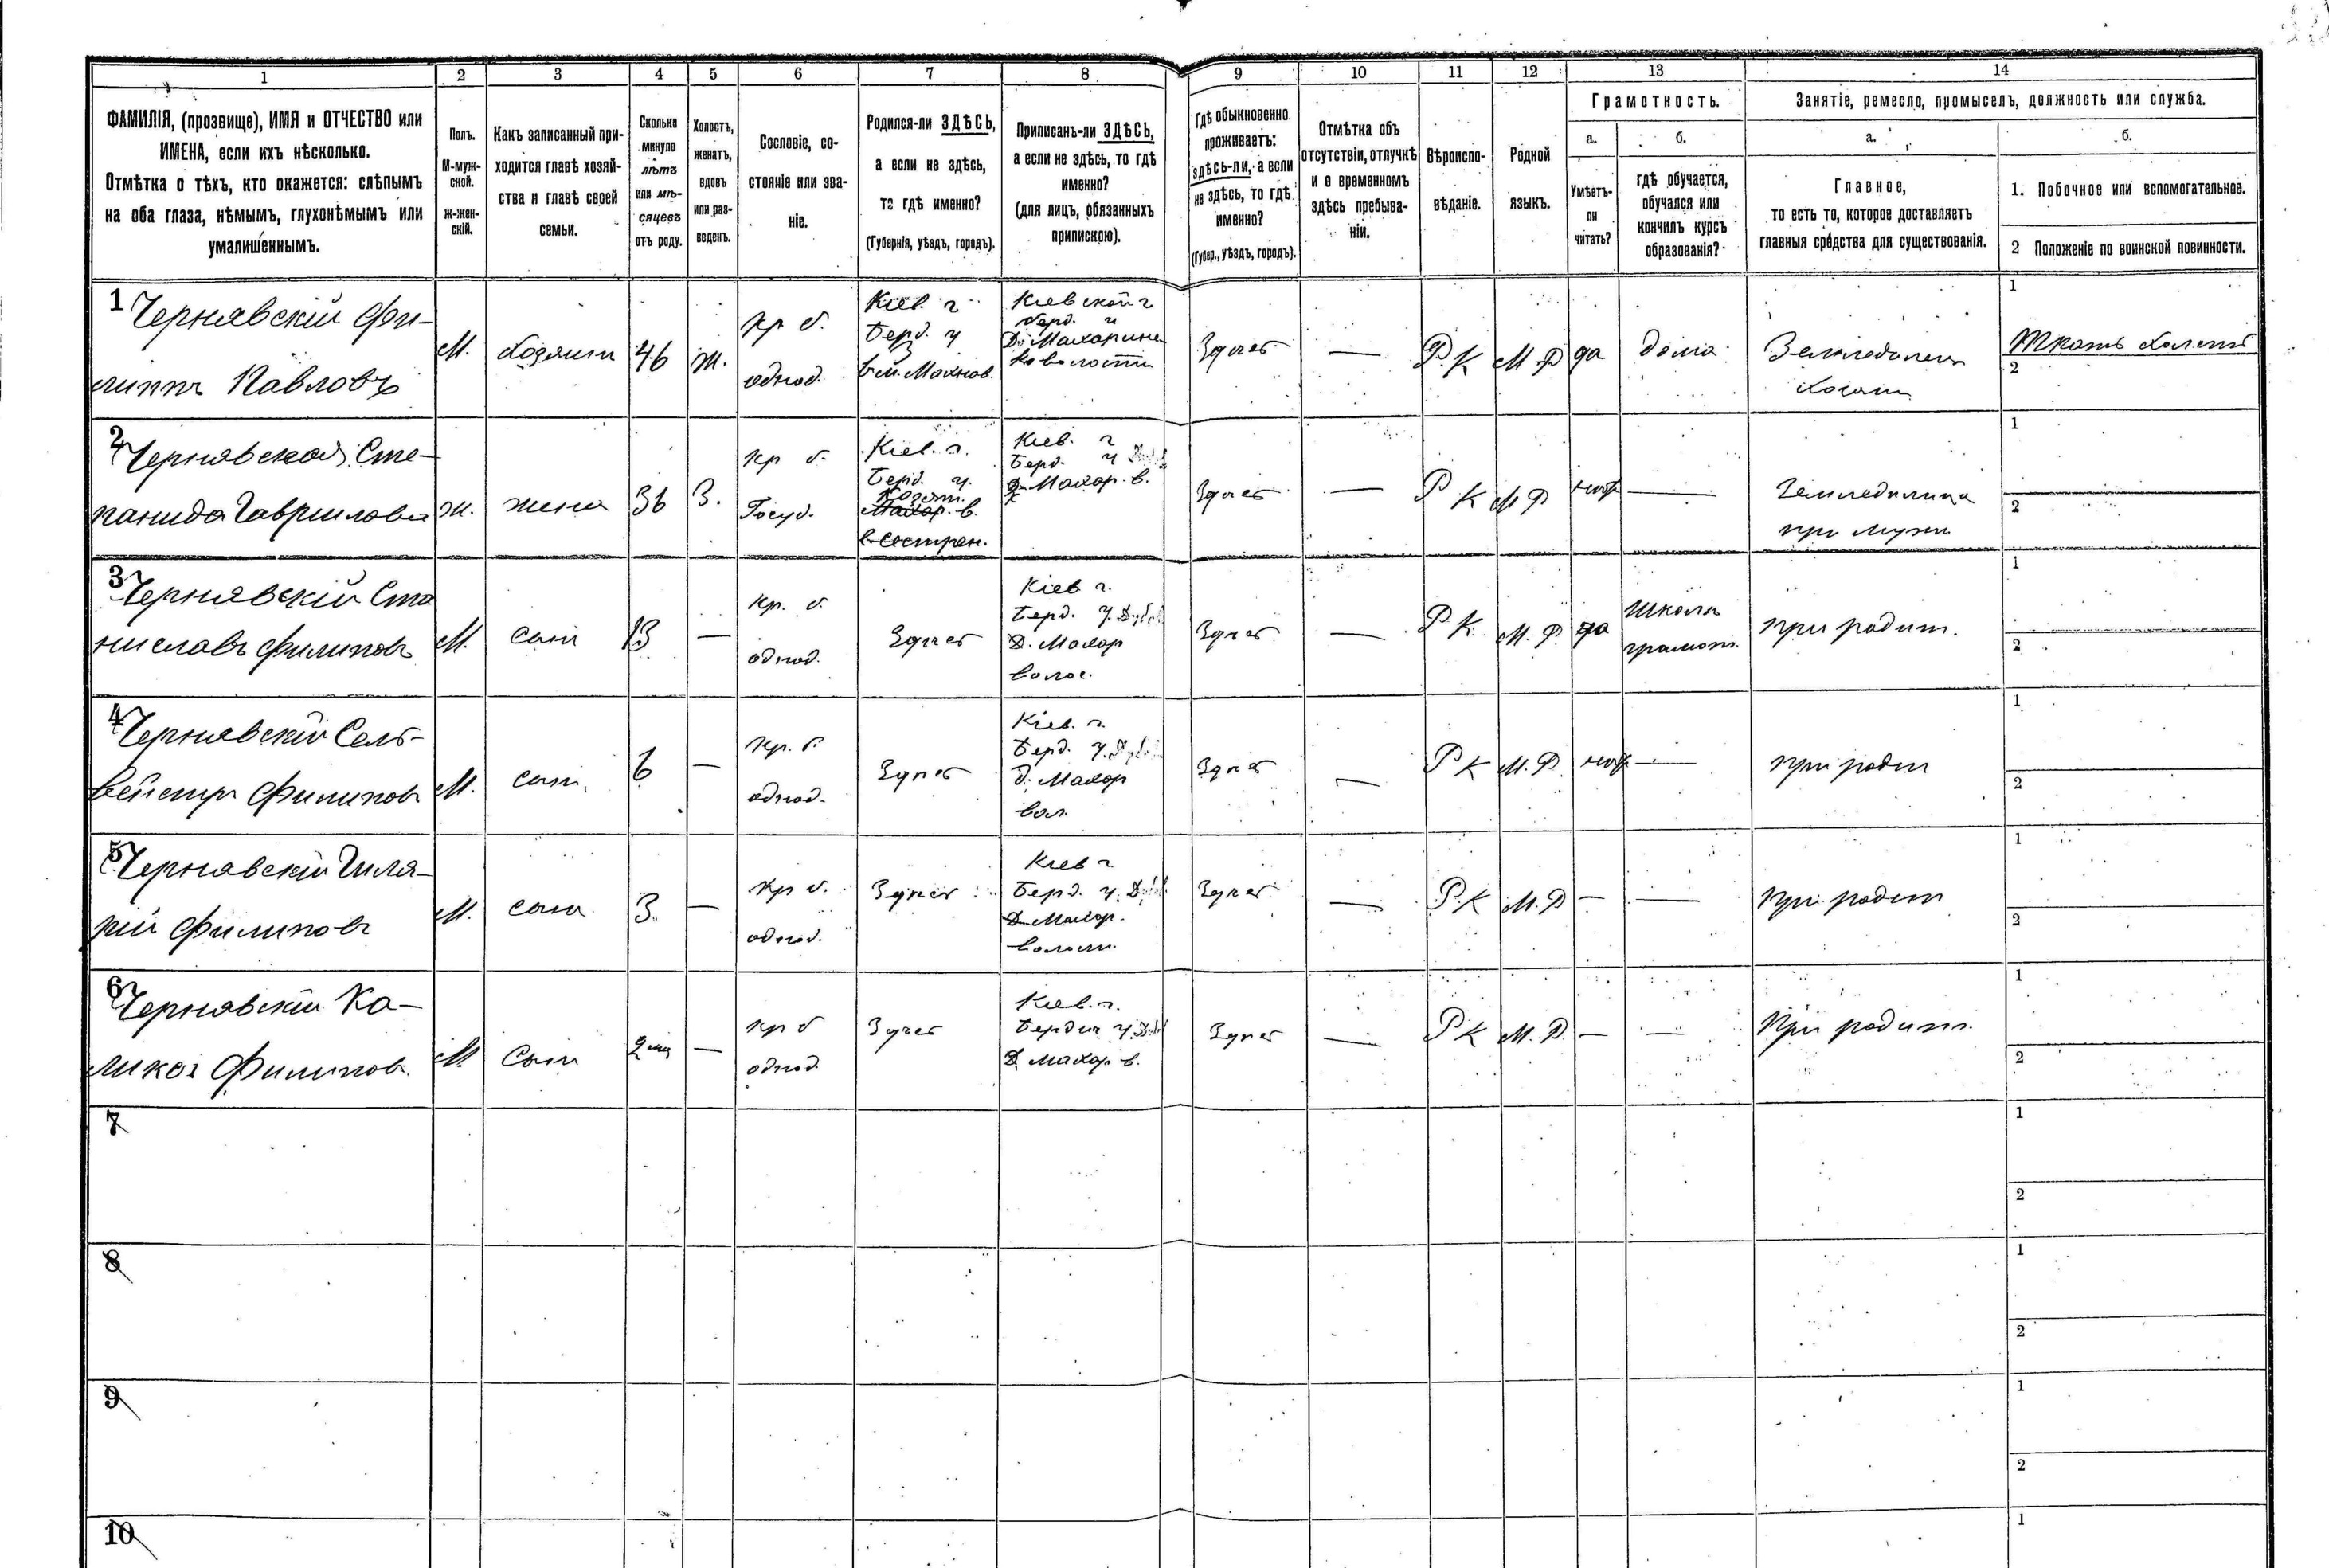 1 2 3 4 5 6 7 8 9 10 11 12 13 14
ФАМИЛІЯ, (прозвище), ИМЯ и ОТЧЕСТВО или
ИМЕНА, если ихъ нѣсколько.
Отмѣтка о тѣхъ, кто окажется: слѣпымъ
на оба глаза, нѣмымъ, глухонѣмымъ или
умалишеннымъ.
Полъ.
М-муж-
ской.
ж-жен-
скій.
Какъ записанный при-
ходится главѣ хозяй-
ства и главѣ своей
семьи.
Сколько
минуло
лѣтъ
или мѣ-
сяцевъ
отъ роду.
Холостъ,
женатъ,
вдовъ
или раз-
веденъ.
Сословіе, со-
стояніе или зва-
ніе.
Родился-ли ЗДѢСЬ,
а если не здѣсь,
то гдѣ именно?
(Губернія, уѣздъ, городъ).
Приписанъ-ли ЗДѢСЬ,
а если не здѣсь, то гдѣ
именно?
(для лицъ, обязанныхъ
припискою).
Гдѣ обыкновенно
проживаетъ:
здѣсь-ли, а если
не здѣсь, то гдѣ
именно?
(Губер., уѣздъ, городъ).
Отмѣтка объ
отсутствіи, отлучкѣ
и о временномъ
здѣсь пребыва-
ніи.
Вѣроиспо-
вѣданіе.
Родной
языкъ.
Грамотность.
а.
Умѣетъ-
ли
читать?
б.
гдѣ обучается,
обучался или
кончилъ курсъ
образованія?
Занятіе, ремесло, промыселъ, должность или служба.
а.
Главное,
то есть то, которое доставляетъ
главныя средства для существованія.
б.
1. Побочное или вспомогательное.
2 Положеніе по воинской повинности.
1 Чернявскій Фи-
липпъ Павловъ
М.
Хозяинъ
46
Ж.
кр б.
однод.
Кіев. г
Берд. у
в м. Махнов.
Кіевской г
берд. у
Здесь
—
Р. К
М. Р
да
дома
Земледелец
хозяин
1
Ткать холст
2
2 Чернявская Сте-
панида Гаврилова
ж.
жена
36
З.
кр б.
Госуд.
Кіев. г.
Берд. у.
Кіев. г
Берд. у
Махор. в.
Здесь
—
Р К
М Р
нет
—
Земледелица
при муже
1
2
3 Чернявскій Ста
ниславъ Филиповъ
М.
сын
13
—
кр. б.
однод.
Здесь
Кіев г.
Берд. у.
Д. Махор
волос.
Здесь
—
Р К.
М. Р.
да
школа
грамот.
при родит.
1
2
4 Чернявскій Сель-
вейстръ Филипов
М.
сын.
6
—
кр. б.
однод.
Здесь
Кіев. г.
Берд. у.
д. Махор
вол.
Здесь
—
Р К
М. Р.
нет
—
при родит
1
2
5 Чернявскій Гиля-
рій Филиповъ
М.
сын
3.
—
кр б.
однод.
Здесь
Кіев г
Берд. у.
Д Махор.
волост.
Здесь
—
Р. К
М. Р
—
—
при родит
1
2
6 Чернявскій Ка-
ликст Филипов.
М
Сын
2 мц
—
кр б
однод.
Здесь
Кіев. г.
Бердич у.
Д Махор в.
Здесь
—
Р К
М. Р.
—
—
При родит.
1
2
7
1
2
8
1
2
9
1
2
10
1